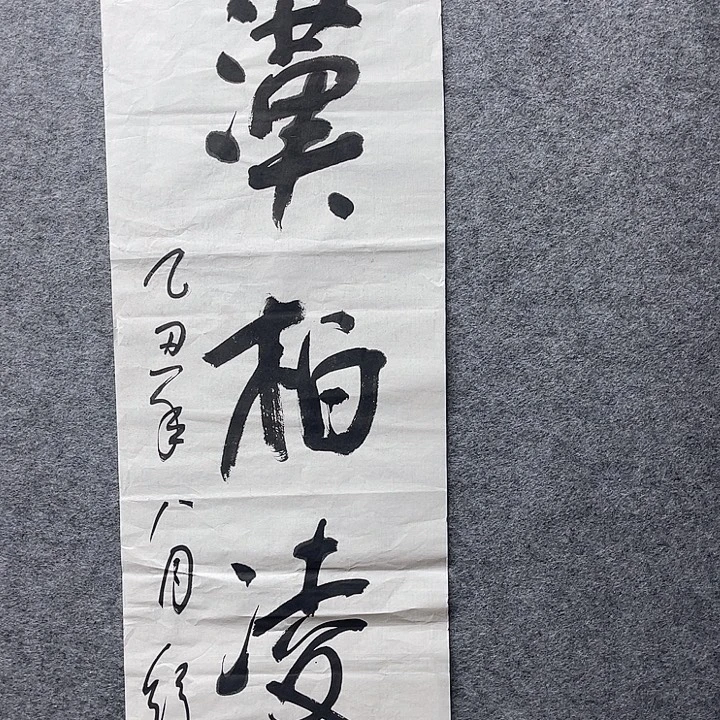 漢柏凌
乙丑年八月